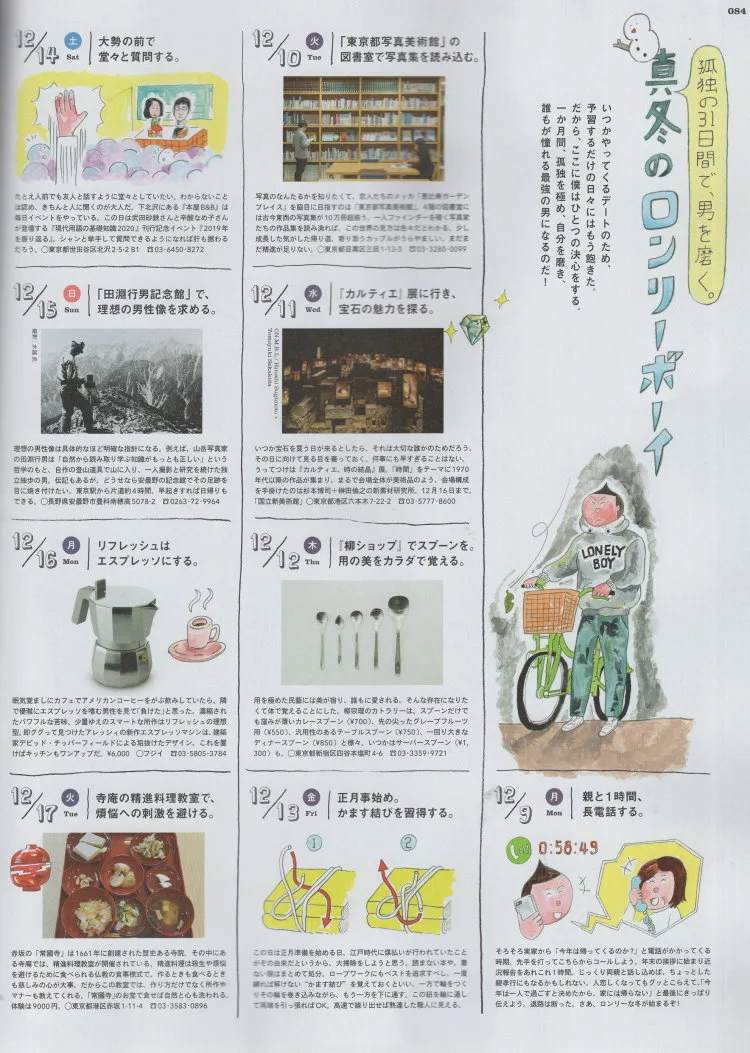 084
孤独の31日間で、男を磨く。
真冬のロンリーボーイ
いつかやってくるデートのため、
予習するだけの日々にはもう飽きた。
だから、ここに僕はひとつの決心をする。
一か月間、孤独を極め、自分を磨き、
誰もが憧れる最強の男になるのだ!
LONELY
BOY
12/9 月 Mon
親と1時間、
長電話する。
0:58:49
そろそろ実家から「今年は帰ってくるのか?」と電話がかかってくる
時期。先手を打ってこちらからコールしよう。年末の挨拶に始まり近
況報告をあれこれ1時間。じっくり両親と話し込めば、ちょっとした
親孝行にもなるかもしれない。人恋しくなってもグッとこらえて、「今
年は一人で過ごすと決めたから、家には帰らない」と最後にきっぱり
伝えよう。退路は断った。さあ、ロンリーな冬が始まるぞ!
12/10 火 Tue
「東京都写真美術館」の
図書室で写真集を読み込む。
写真のなんたるかを知りたくて、恋人たちのメッカ「恵比寿ガーデン
プレイス」を脇目に目指すのは「東京都写真美術館」。4階の図書室に
は古今東西の写真集が10万冊超揃う。一人ファインダーを覗く写真家
たちの作品集を読み漁れば、この世界の見方は色々だとわかる。少し
成長した気がした帰り道、寄り添うカップルがうらやましい。まだま
だ精進が足りない。◯東京都目黒区三田1-13-3 ☎03・3280・0099
12/11 水 Wed
『カルティエ』展に行き、
宝石の魅力を探る。
©N.M.R.L./ Hiroshi Sugimoto +
Tomoyuki Sakakida
いつか宝石を買う日が来るとしたら、それは大切な誰かのためだろう。
その日に向けて見る目を養っておく。何事にも早すぎることはない。
うってつけは『カルティエ、時の結晶』展。「時間」をテーマに1970
年代以降の作品が集まり、まるで会場全体が美術品のよう。会場構成
を手掛けたのは杉本博司+榊田倫之の新素材研究所。12月16日まで。
「国立新美術館」◯東京都港区六本木7-22-2 ☎03・5777・8600
12/12 木 Thu
『柳ショップ』でスプーンを。
用の美をカラダで覚える。
用を極めた民藝には美が宿り、誰もに愛される。そんな存在になりた
くて体で覚えることにした。柳宗理のカトラリーは、スプーンだけで
も窪みが薄いカレースプーン(¥700)、先の尖ったグレープフルーツ
用(¥550)、汎用性のあるテーブルスプーン(¥750)、一回り大きな
ディナースプーン(¥850)と様々。いつかはサーバースプーン(¥1,
300)も。◯東京都新宿区四谷本塩町4-6 ☎03・3359・9721
12/13 金 Fri
正月事始め。
かます結びを習得する。
1
2
この日は正月準備を始める日。江戸時代に煤払いが行われていたこと
がその由来だというから、大掃除をしようと思う。読まない本や、着
ない服はまとめて処分。ロープワークにもベストを追求すべし。一度
縛れば解けない“かます結び”を覚えておくといい。一方で輪をつく
りその輪を巻き込みながら、もう一方を下に通す。この紐を輪に通し
て両端を引っ張ればOK。高速で繰り出せば熟達した職人に見える。
12/14 土 Sat
大勢の前で
堂々と質問する。
たとえ人前でも友人と話すように堂々としていたい。わからないこと
は認め、きちんと人に聞くのが大人だ。下北沢にある『本屋B&B』は
毎日イベントをやっている。この日は武田砂鉄さんと辛酸なめ子さん
が登壇する『現代用語の基礎知識2020』刊行記念イベント「2019年
を振り返る」。シャンと挙手して質問できるようになれば肝も据わる
だろう。◯東京都世田谷区北沢2-5-2 B1 ☎03・6450・8272
12/15 日 Sun
「田淵行男記念館」で、
理想の男性像を求める。
理想の男性像は具体的なほど明確な指針になる。例えば、山岳写真家
の田淵行男は「自然から読み取り学ぶ知識がもっとも正しい」という
哲学のもと、自作の登山道具で山に入り、一人撮影と研究を続けた独
立独歩の男。伝記もあるが、どうせなら安曇野の記念館でその足跡を
目に焼き付けたい。東京駅から片道約4時間、早起きすれば日帰りも
できる。◯長野県安曇野市豊科南穂高5078-2 ☎0263・72・9964
12/16 月 Mon
リフレッシュは
エスプレッソにする。
眠気覚ましにカフェでアメリカンコーヒーをがぶ飲みしていたら、隣
で優雅にエスプレッソを嗜む男性を見て「負けた」と思った。濃縮され
たパワフルな苦味、少量ゆえのスマートな所作はリフレッシュの理想
型。即ググって見つけたアレッシィの新作エスプレッソマシンは、建築
家デビッド・チッパーフィールドによる垢抜けたデザイン。これを置
けばキッチンもワンアップだ。¥6,000 ◯フジイ ☎03・5805・3784
12/17 火 Tue
寺庵の精進料理教室で、
煩悩への刺激を避ける。
赤坂の「常國寺」は1661年に創建された歴史ある寺院。その中にあ
る寺庵では、精進料理教室が開催されている。精進料理は殺生や煩悩
を避けるために食べられる仏教の食事様式で、作るときも食べるとき
も慈しみの心が大事。だからこの教室では、作り方だけでなく所作や
マナーも教えてくれる。「常國寺」のお堂で食せば自然と心も洗われる。
体験は9000円。◯東京都港区赤坂1-11-4 ☎03・3583・0896